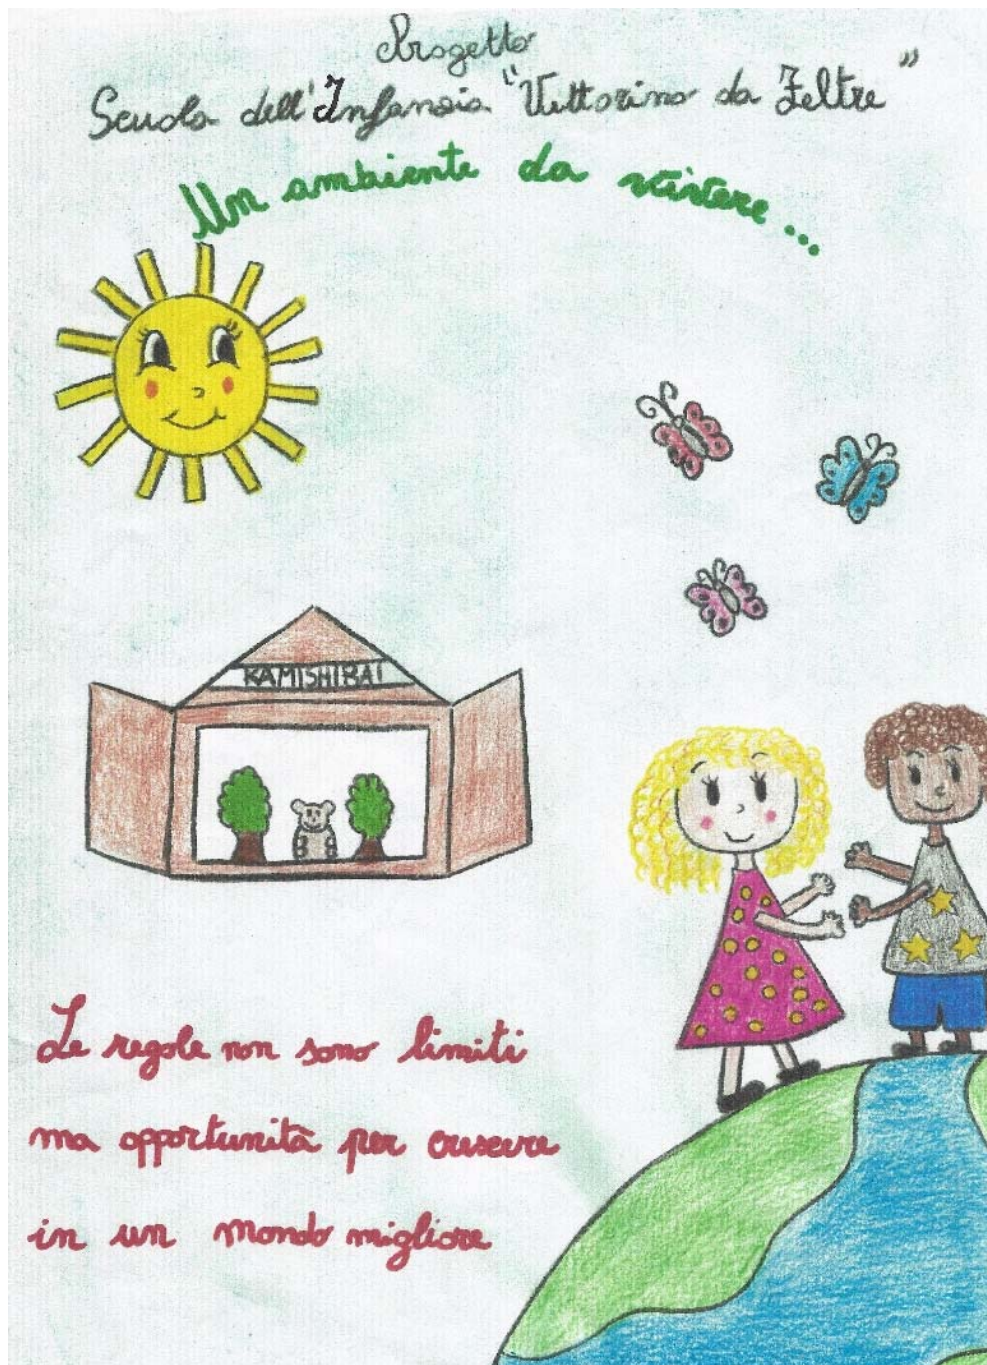 Progetto
Scuola dell'Infanzia "Vittorino da Feltre"
Un ambiente da vivere...
KAMISHIBAI
Le regole non sono limiti
ma opportunità per crescere
in un mondo migliore